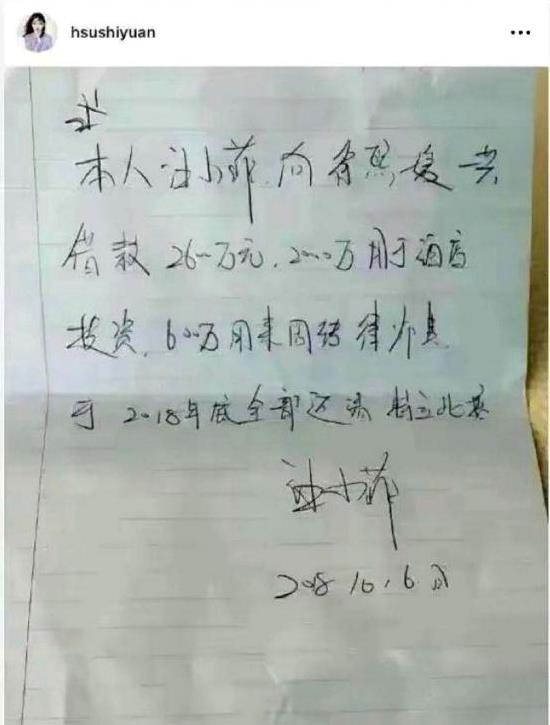 hsushiyuan
本人汪小菲向徐熙媛共
借款2600万元，2000万用于酒店
投资，600万用来周转
于2018年底全部还清 特立此
汪小菲
2018 10.6